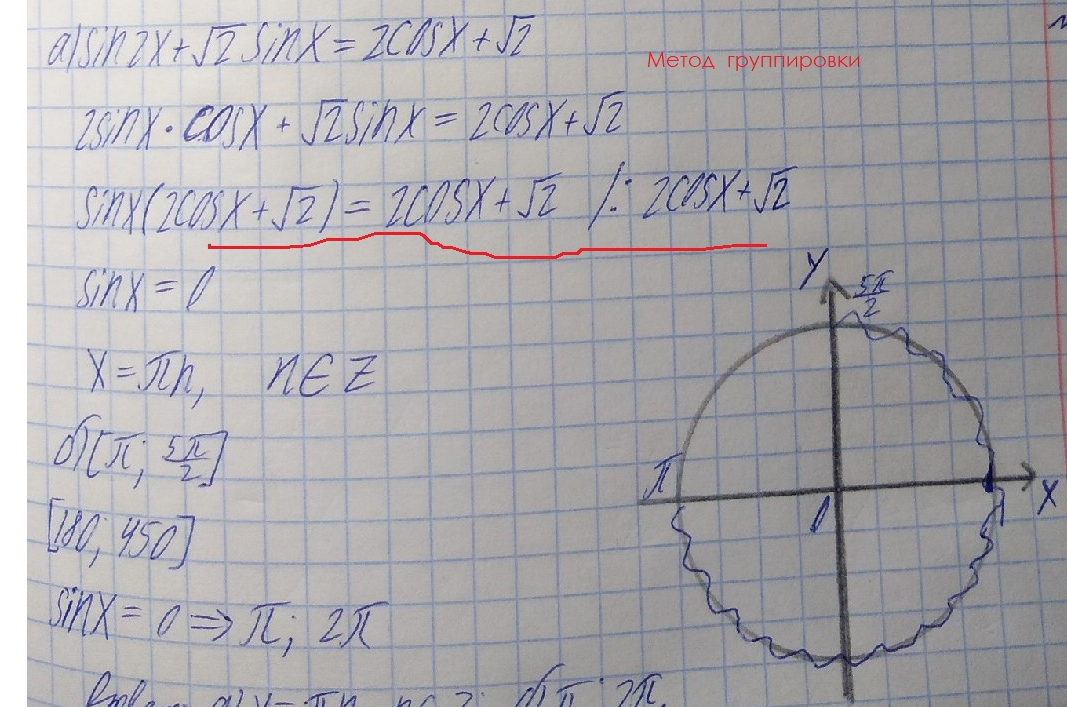 а) sin2x+√2 sinx = 2cosx+√2
Метод группировки
2sinx·cosx + √2sinx = 2cosx+√2
sinx(2cosx+√2) = 2cosx+√2 /: 2cosx+√2
sinx = 0
x = πn, n∈Z
б) [π; 5π/2]
[180; 450]
sinx = 0 => π; 2π
Ответ: а) x=πn, n∈Z; б) π; 2π.
y
5π/2
π
0
x